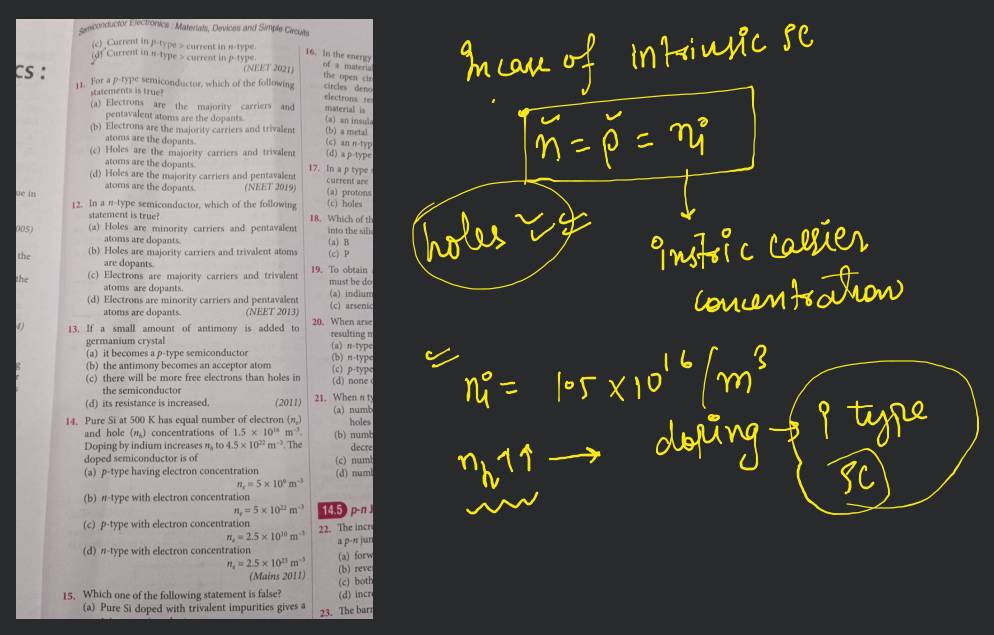 Semiconductor Electronics : Materials, Devices and Simple Circuits
(c) Current in p-type > current in n-type.
(d) Current in n-type > current in p-type.
(NEET 2021)
11. For a p-type semiconductor, which of the following
statements is true?
(a) Electrons are the majority carriers and
pentavalent atoms are the dopants.
(b) Electrons are the majority carriers and trivalent
atoms are the dopants.
(c) Holes are the majority carriers and trivalent
atoms are the dopants.
(d) Holes are the majority carriers and pentavalent
atoms are the dopants. (NEET 2019)
12. In a n-type semiconductor, which of the following
statement is true?
(a) Holes are minority carriers and pentavalent
atoms are dopants.
(b) Holes are majority carriers and trivalent atoms
are dopants.
(c) Electrons are majority carriers and trivalent
atoms are dopants.
(d) Electrons are minority carriers and pentavalent
atoms are dopants. (NEET 2013)
13. If a small amount of antimony is added to
germanium crystal
(a) it becomes a p-type semiconductor
(b) the antimony becomes an acceptor atom
(c) there will be more free electrons than holes in
the semiconductor
(d) its resistance is increased. (2011)
14. Pure Si at 500 K has equal number of electron (nₑ)
and hole (nₕ) concentrations of 1.5 × 10¹⁶ m⁻³.
Doping by indium increases nₕ to 4.5 × 10²² m⁻³. The
doped semiconductor is of
(a) p-type having electron concentration
nₑ = 5 × 10⁹ m⁻³
(b) n-type with electron concentration
nₑ = 5 × 10²² m⁻³
(c) p-type with electron concentration
nₑ = 2.5 × 10¹⁰ m⁻³
(d) n-type with electron concentration
nₑ = 2.5 × 10²³ m⁻³
(Mains 2011)
15. Which one of the following statement is false?
(a) Pure Si doped with trivalent impurities gives a
CS :
ue in
005)
the
the
4)
16. In the energy
of a material
the open cir
circles deno
electrons res
material is
(a) an insula
(b) a metal
(c) an n-typ
(d) a p-type
17. In a p type
current are
(a) protons
(c) holes
18. Which of th
into the sili
(a) B
(c) P
19. To obtain
must be do
(a) indium
(c) arsenic
20. When arse
resulting m
(a) n-type
(b) n-type
(c) p-type
(d) none
21. When n ty
(a) numb
holes
(b) numb
decre
(c) numb
(d) numb
14.5 p-n J
22. The incre
a p-n jun
(a) forw
(b) reve
(c) both
(d) incr
23. The barr
In case of intrinsic SC
n = p = ni
holes
instric carrier
concentration
ni = 1.5 × 10¹⁶ / m³
nₕ ↑↑ → doping → P type
SC